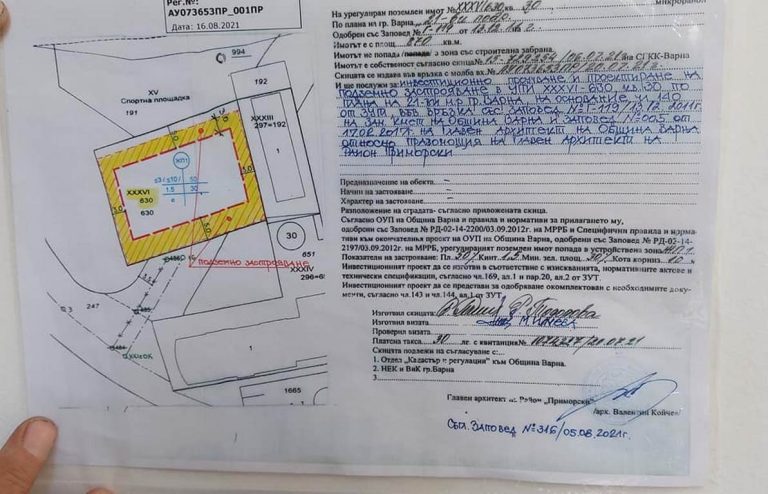 Рег.№:
АУ073653ПР_001ПР
Дата: 16.08.2021
994
192
XV
Спортна площадка
191
XXXIII
297=192
1
5.0
3.0
ЖП1
≤3/≤10/ 50
1.5 30
с
XXXVI
630
630
3.0
5.0
30
651
XXXIV
ПОДЗЕМНО ЗАСТРОЯВАНЕ
247
3
1
1665
На урегулиран поземлен имот № XXXVI-630 кв. 30
По плана на гр. Варна, 21-ви подр.
Одобрен със Заповед №
Имотът е с площ 870 кв.м.
Имотът не попада/ попада в зона със строителна забрана.
Имотът е собственост съгласно скица на СГКК-Варна
Скицата се издава във връзка с молба вх.№
И ще послужи за ИНВЕСТИЦИОННО ПРОУЧВАНЕ И ПРОЕКТИРАНЕ НА
ПОДЗЕМНО ЗАСТРОЯВАНЕ В УПИ XXXVI-630, КВ.30 ПО
ПЛАНА НА 21-ви м.р. ГР. ВАРНА, НА ОСНОВАНИЕ ЧЛ. 140
ОТ ЗУТ, ВЪВ ВРЪЗКА СЪС ЗАПОВЕД
НА ЗАМ. КМЕТ НА ОБЩИНА ВАРНА И ЗАПОВЕД №005 ОТ
17.02.2017г. НА ГЛАВЕН АРХИТЕКТ НА ОБЩИНА ВАРНА
ОТНОСНО ПРАВОМОЩИЯ НА ГЛАВЕН АРХИТЕКТ НА
РАЙОН ПРИМОРСКИ
Предназначение на обекта.–
Начин на застрояване –
Характер на застрояване –
Разположение на сградата- съгласно приложената скица.
Съгласно ОУП на Община Варна и правила и нормативи за прилагането му,
одобрени със Заповед № РД-02-14-2200/03.09.2012г. на МРРБ и Специфични правила и норма-
тиви към окончателния проект на ОУП на Община Варна, одобрени със Заповед № РД-02-14-
2197/03.09.2012г. на МРРБ, урегулираният поземлен имот попада в устройствена зона
Показатели на застрояване: Пл. 30/ Кинт. 1.5 Мин. зел. площ 50/ Кота корниз 10 м.
Инвестиционният проект да се изготви в съответствие с изискванията, нормативните актове и
технически спецификации, съгласно чл.169, ал.1 и пар.20, ал.2 от ЗУТ.
Инвестиционният проект да се представи за одобряване окомплектован с необходимите доку-
менти, съгласно чл.143 и чл.144, ал.1 от ЗУТ.
Изготвил скицата:
Изготвил визата
Проверил визата
Платена такса 30 лг. с квитанция №
Скицата подлежи на съгласуване с:
1. Отдел „Кадастър и регулация" към Община Варна.
2. НЕК и ВиК гр.Варна
3.
Главен архитект на Район „Приморски"
/арх. Валентин Койчев/
СЪГЛ. ЗАПОВЕД №316/05.08.2021г.